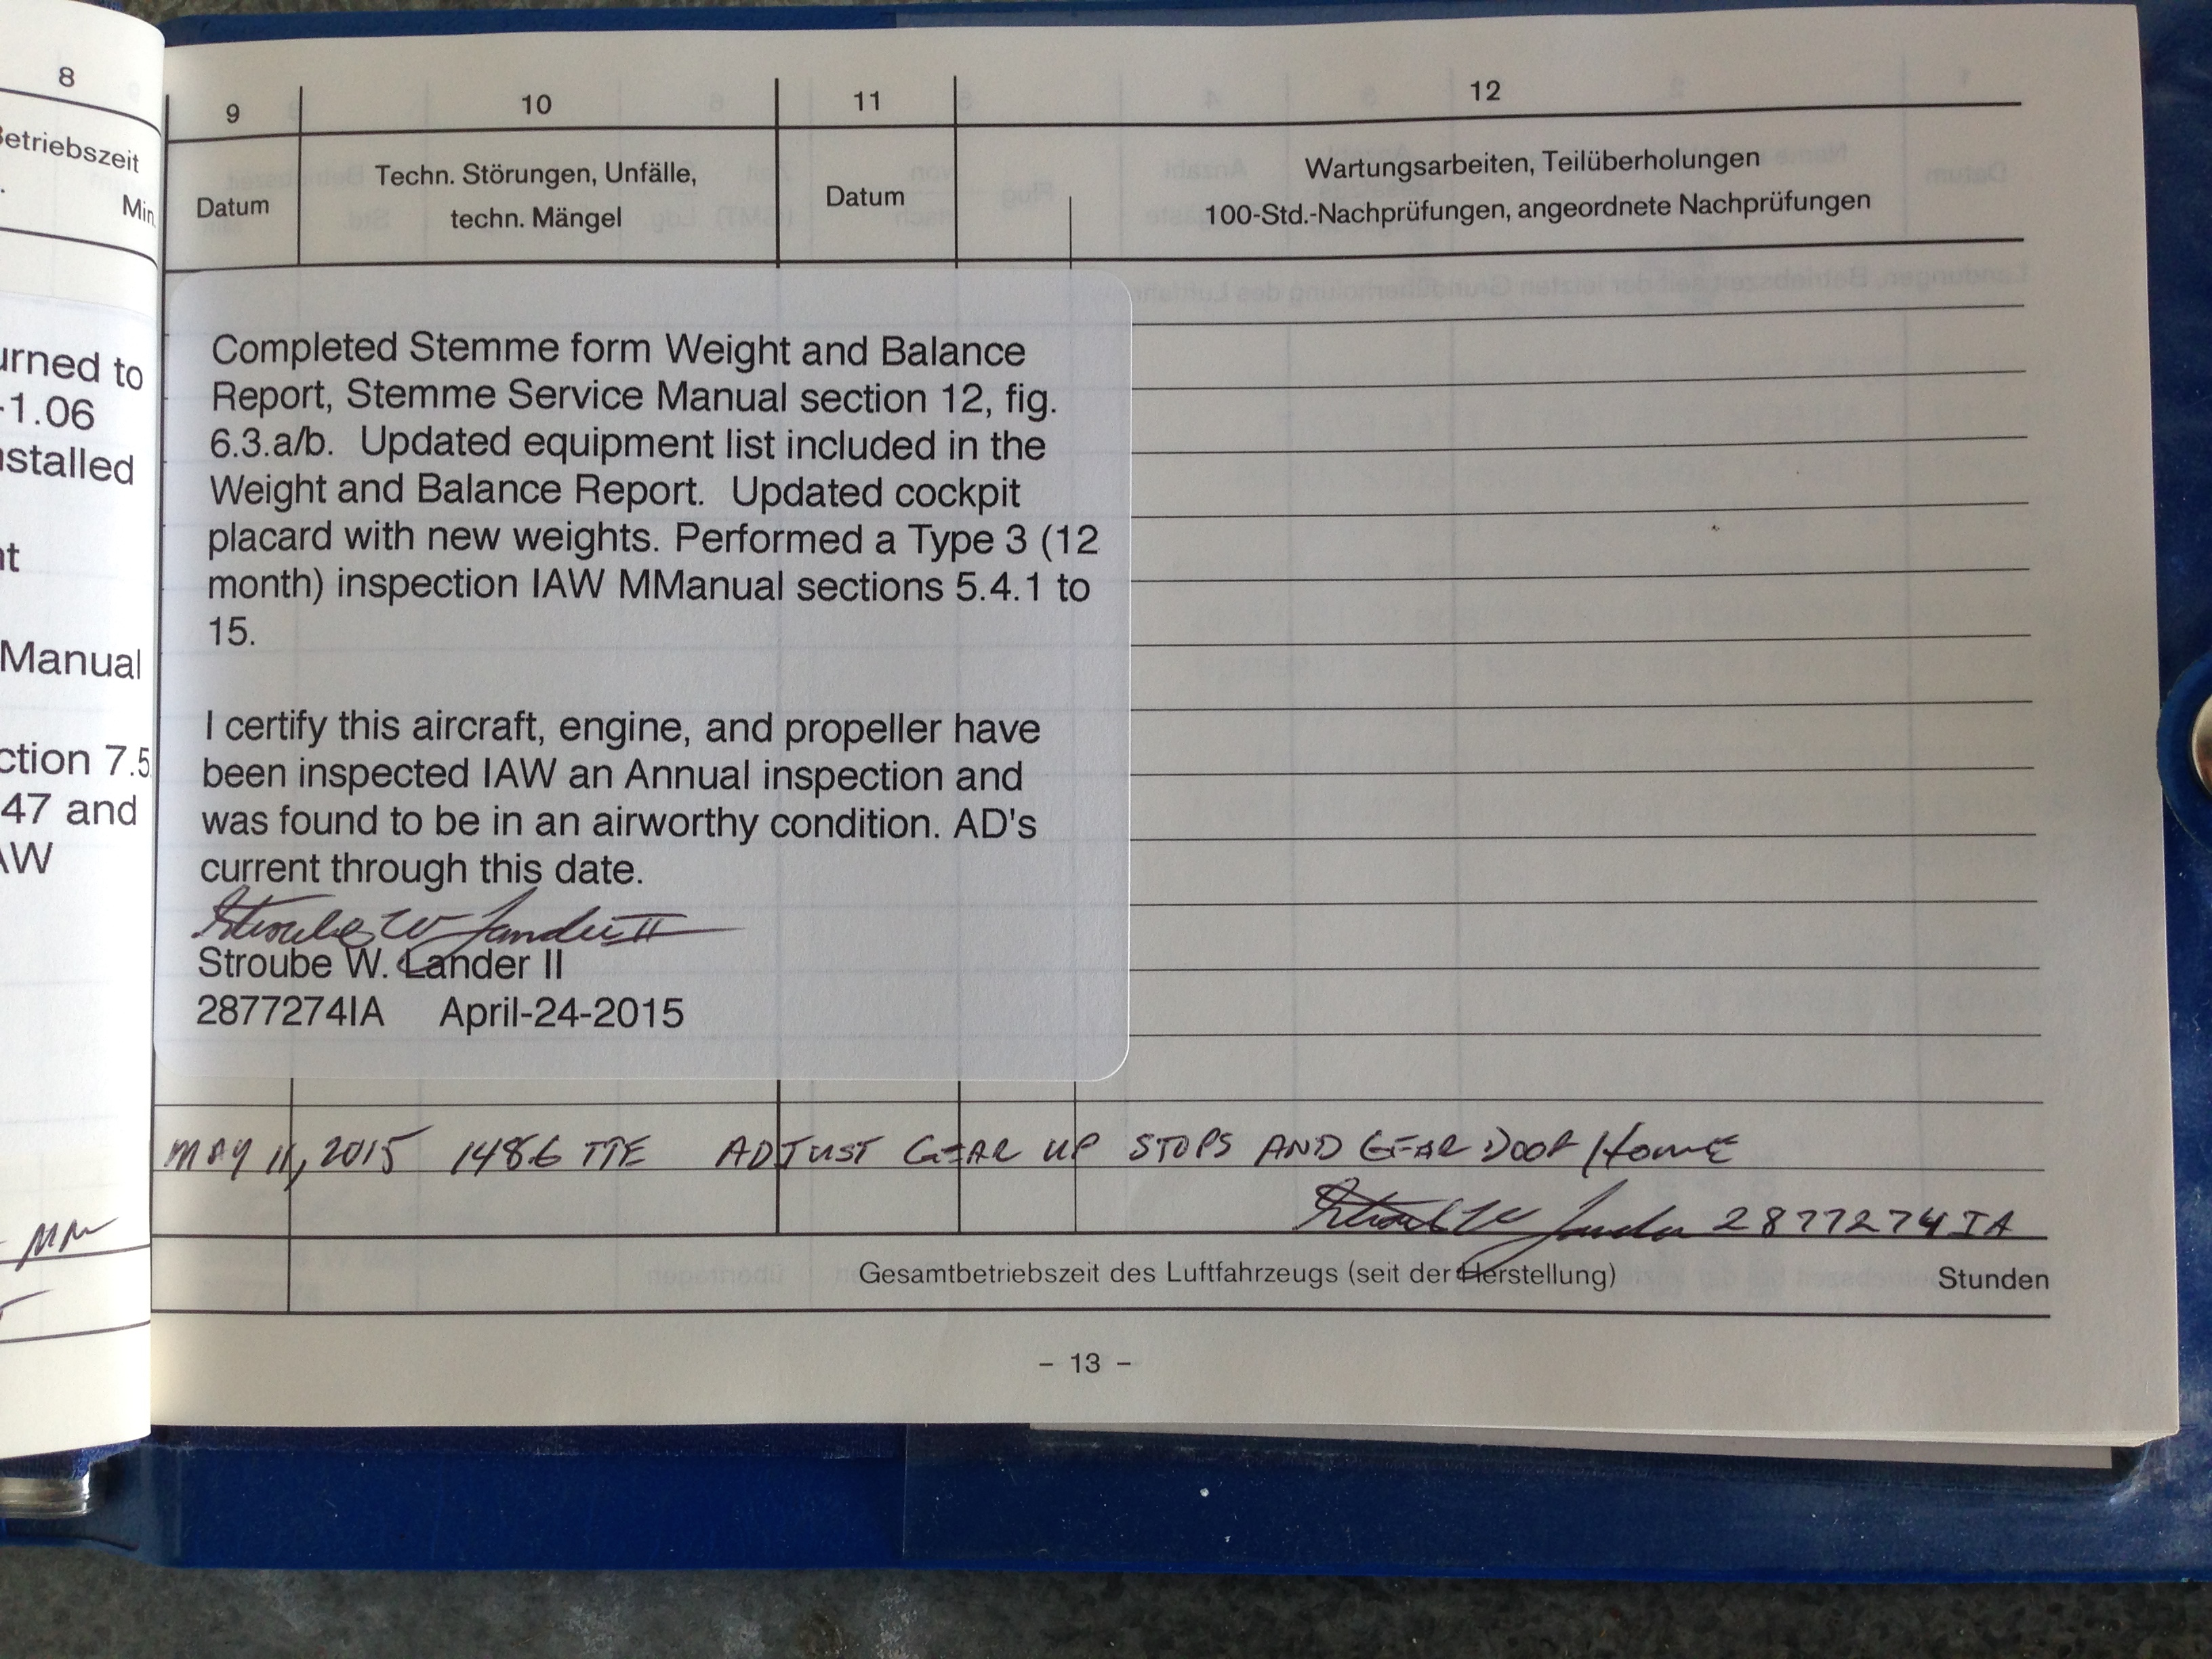 8
Betriebszeit
Min.
urned to
-1.06
nstalled
nt
Manual
ction 7.5
47 and
AW
MM
9 10 11 12
Datum
Techn. Störungen, Unfälle,
techn. Mängel
Datum
Wartungsarbeiten, Teilüberholungen
100-Std.-Nachprüfungen, angeordnete Nachprüfungen
Completed Stemme form Weight and Balance
Report, Stemme Service Manual section 12, fig.
6.3.a/b. Updated equipment list included in the
Weight and Balance Report. Updated cockpit
placard with new weights. Performed a Type 3 (12
month) inspection IAW MManual sections 5.4.1 to
15.
I certify this aircraft, engine, and propeller have
been inspected IAW an Annual inspection and
was found to be in an airworthy condition. AD's
current through this date.
Stroube W Lander II
Stroube W. Lander II
2877274IA April-24-2015
MAY 11, 2015 1486 TTE ADJUST GEAR UP STOPS AND GEAR DOOR
Stroube W Lander 2877274 IA
Gesamtbetriebszeit des Luftfahrzeugs (seit der Herstellung) Stunden
- 13 -